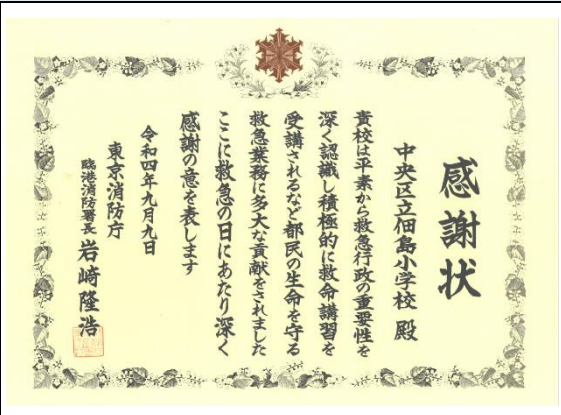 感謝状
中央区立佃島小学校 殿
貴校は平素から救急行政の重要性を
深く認識し積極的に救命講習を
受講されるなど都民の生命を守る
救急業務に多大な貢献をされました
ここに救急の日にあたり深く
感謝の意を表します
令和四年九月九日
東京消防庁
臨港消防署長 岩崎隆浩